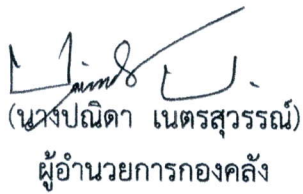 (นางปณิดา  เนตรสุวรรณ์)
ผู้อำนวยการกองคลัง